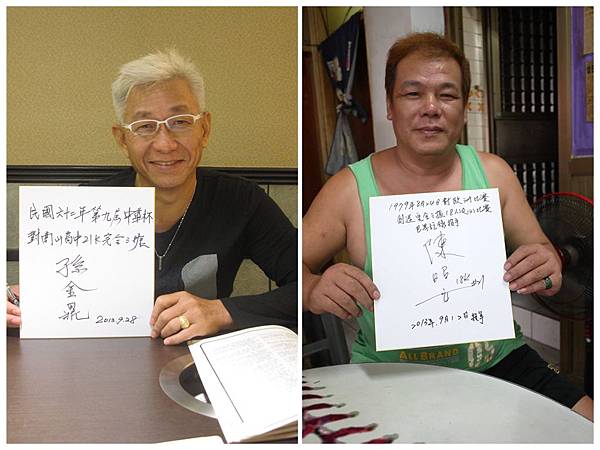 民國六十二年第九屆中華杯
對南山高中21K完全三振
孫
金
鼎
2013.9.28
1979年8月24日對歐洲比賽
創造完全三振18人次比賽
世界紀錄投手
陳
昭
安
2013年.9月12日
ALL BRAND